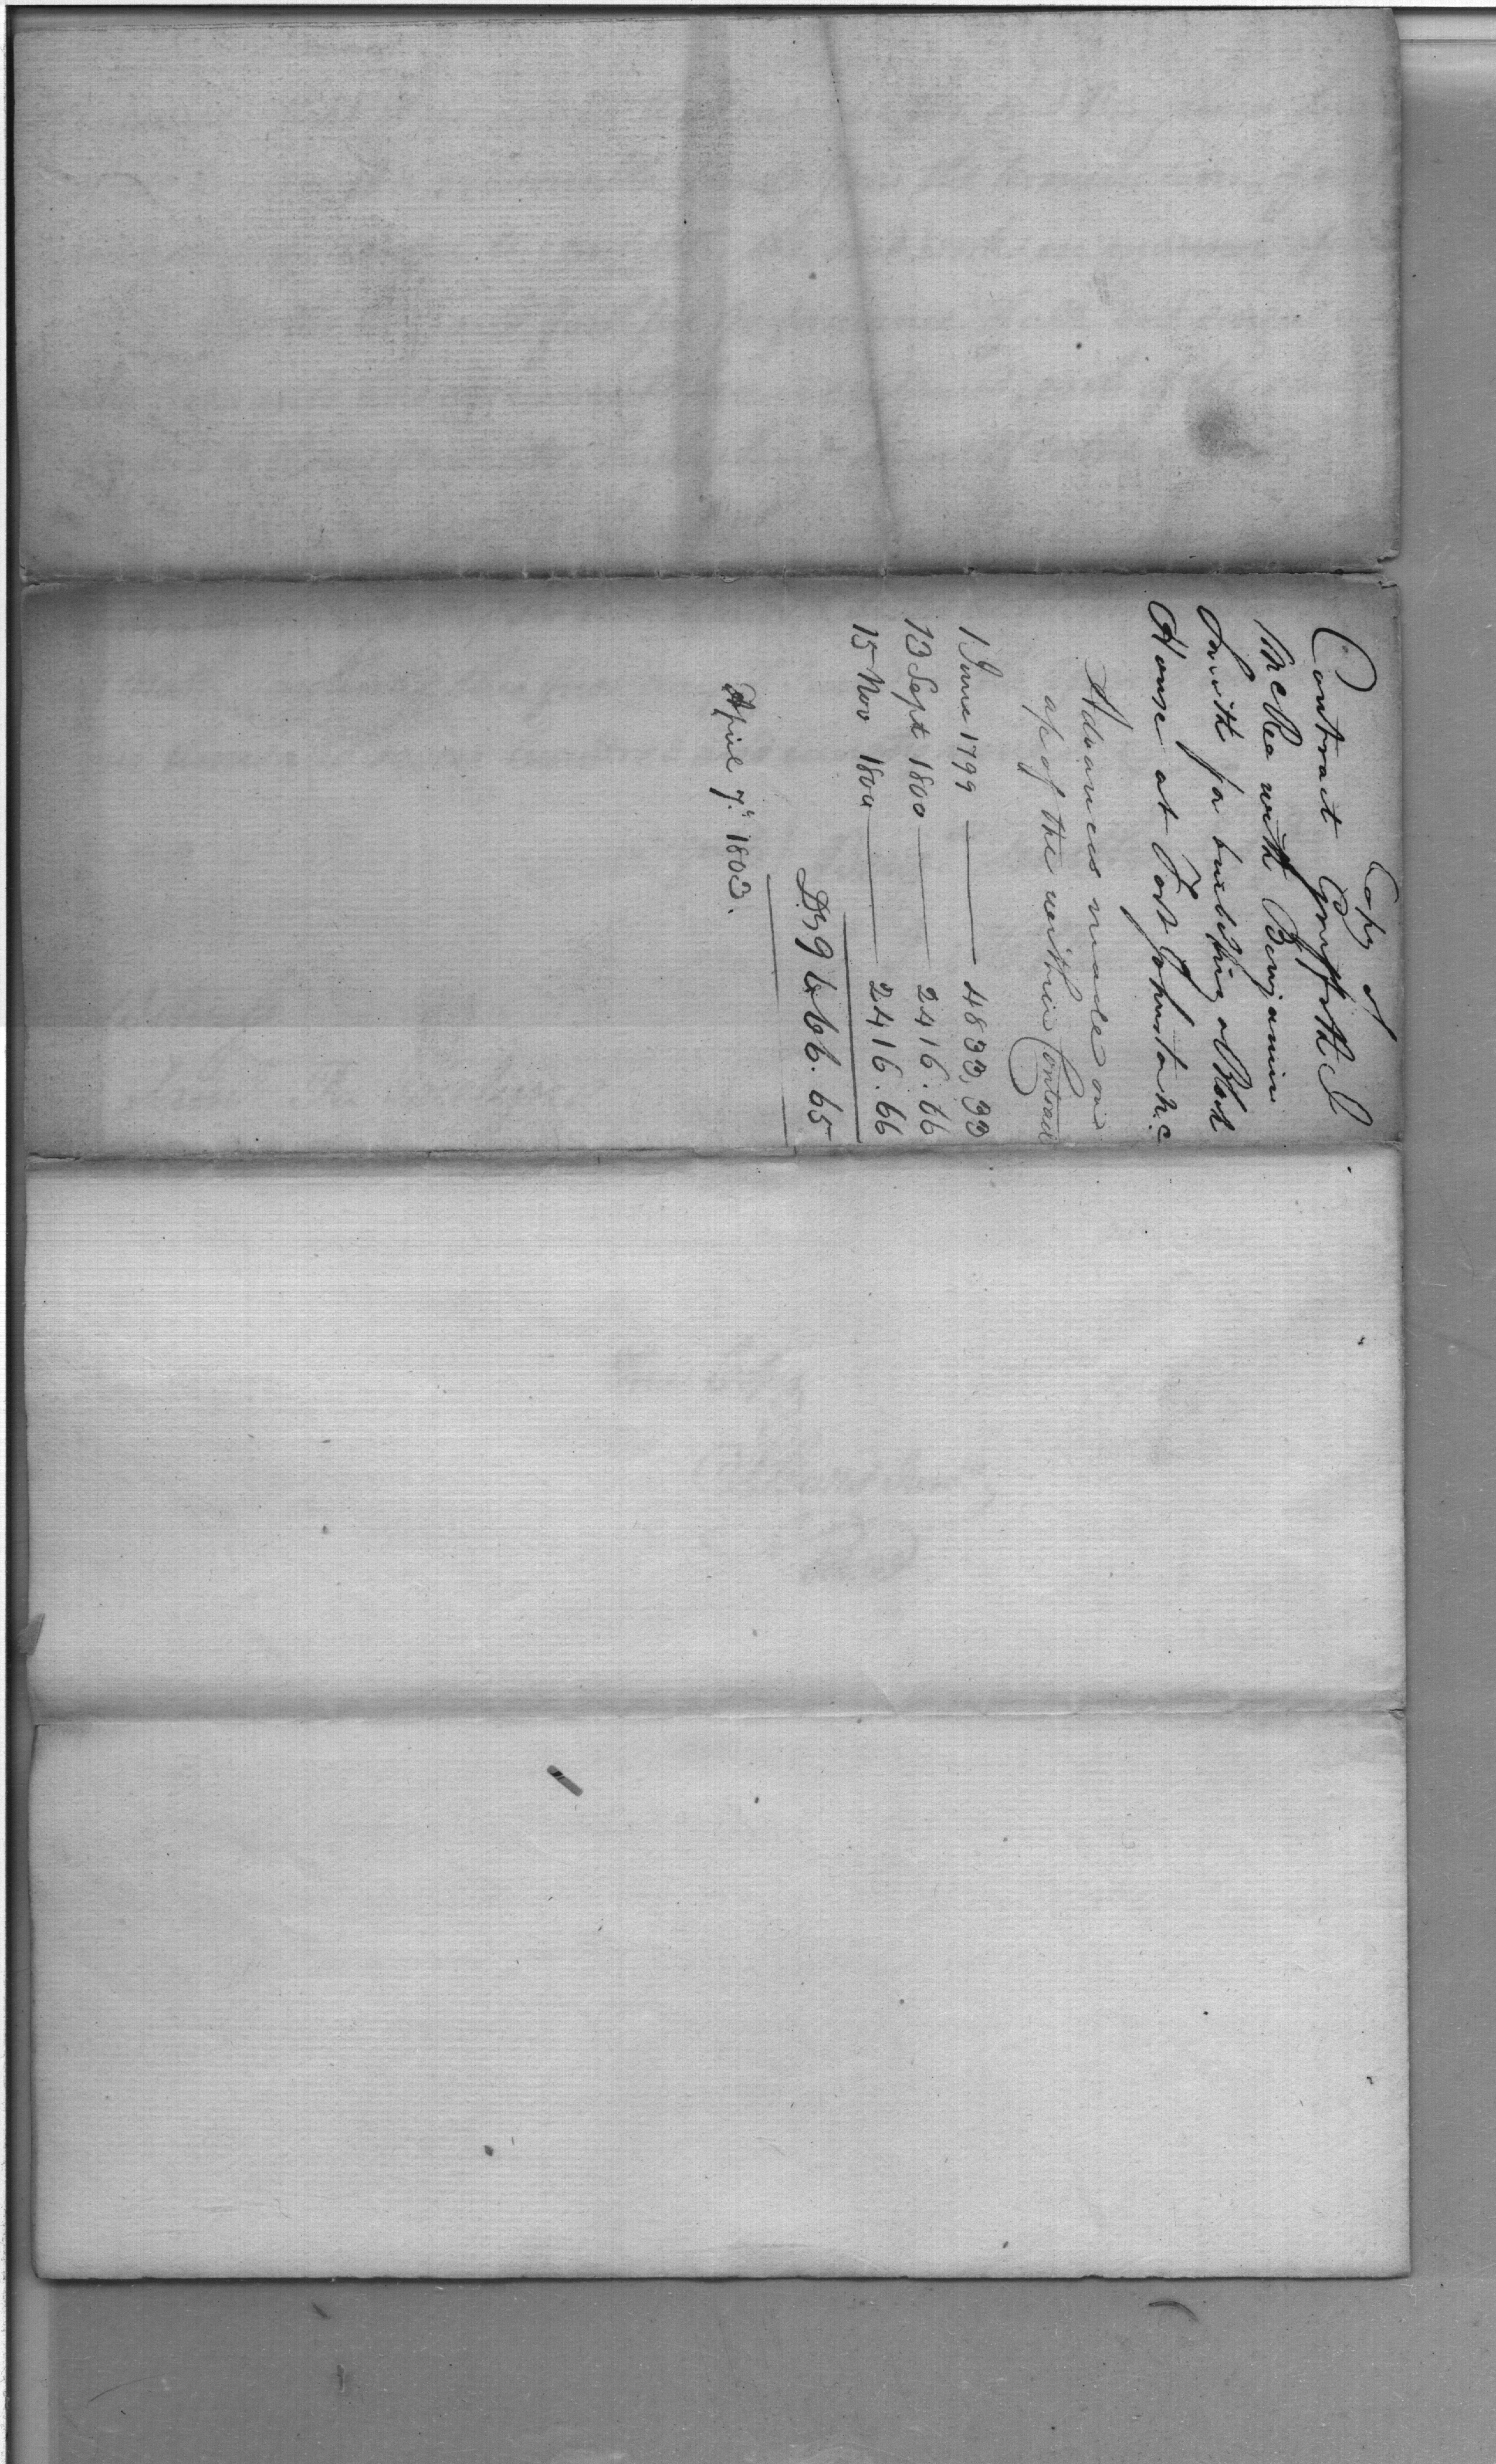 Copy of
Contract Gryffith J
McRee with Benjamin
Smith for building a Block
House at Fort Johnston N.C
Advances made on
a/c of the within Contract
1 June 1799 — 4833,33
13 Sept 1800 — 2416.66
15 Nov 1800 — 2416.66
Ds 9666.65
April 7th 1803.